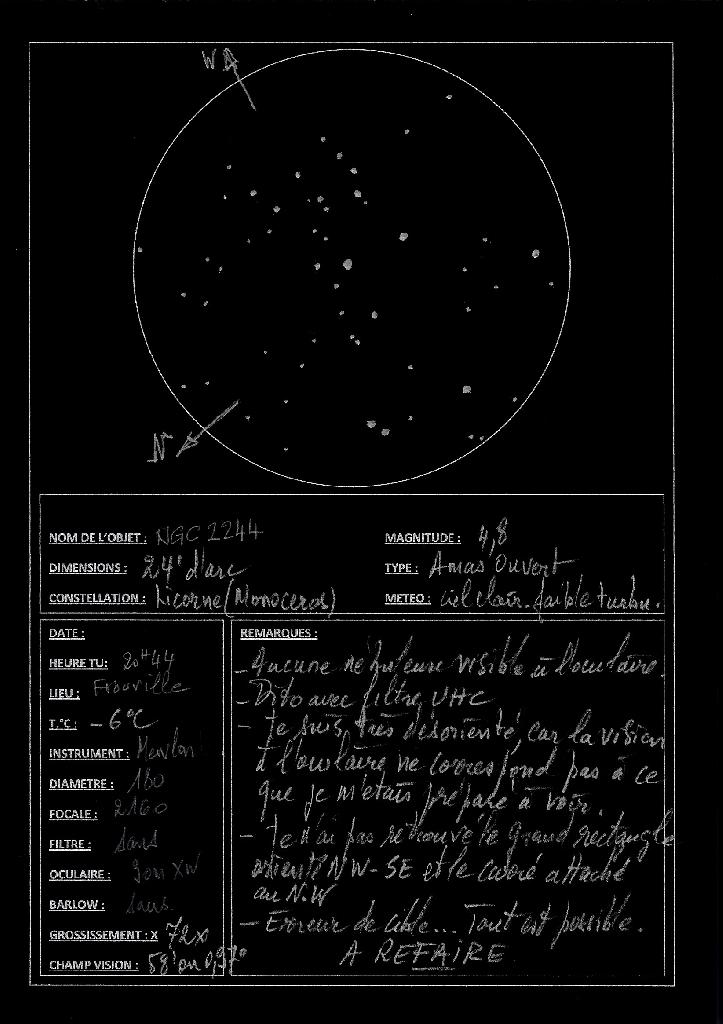 W
N
NOM DE L'OBJET : NGC 2244
MAGNITUDE : 4,8
DIMENSIONS : 24' d'arc
TYPE : Amas Ouvert
CONSTELLATION : Licorne (Monoceros)
METEO : Ciel clair. faible turbu.
DATE :
HEURE TU: 20H44
LIEU : Frouville
T.°C : -6°C
INSTRUMENT : Mewlon
DIAMETRE : 180
FOCALE : 2160
FILTRE : Sans
OCULAIRE : 30m XW
BARLOW : Sans
GROSSISSEMENT : X 72x
CHAMP VISION : 58' ou 0,97°
REMARQUES :
- Aucune nébuleuse visible à l'oculaire.
- Dito avec filtre UHC
- Je suis très désorienté, car la vision
à l'oculaire ne correspond pas à ce
que je m'étais préparé à voir.
- Je n'ai pas retrouvé le grand rectangle
orienté NW-SE et le carré attaché
au N.W
- Erreur de cible... Tout est possible.
A REFAIRE